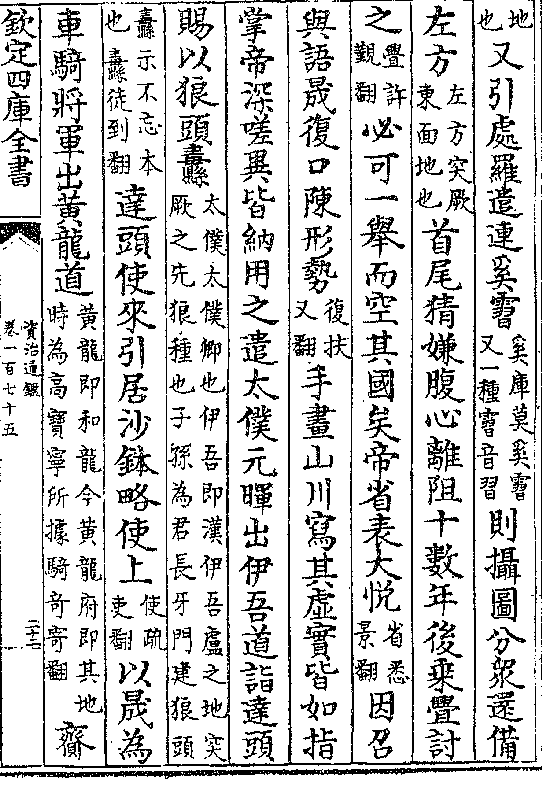 地也又引處羅遣連奚霫奚庫莫奚霫又一種霫音習則攝圖分衆還備
左方左方突厥東面地也首尾猜嫌腹心離阻十數年後乗釁討
之釁許覲翻必可一舉而空其國矣帝省表大悦省悉景翻因召
與語晟復口陳形勢復扶又翻手畫山川寫其虚實皆如指
掌帝深嗟異皆納用之遣太僕元暉出伊吾道詣達頭
賜以狼頭纛太僕太僕卿也伊吾即漢伊吾盧之地突厥之先狼種也子孫為君長牙門建狼頭
纛示不忘本也纛徒到翻達頭使來引居沙鉢略使上使疏吏翻以晟為
車騎將軍出黄龍道黄龍即和龍今黄龍府即其地時為高寶寧所據騎奇寄翻齎
欽定四庫全書
資治通鑑
卷一百七十五
二十二